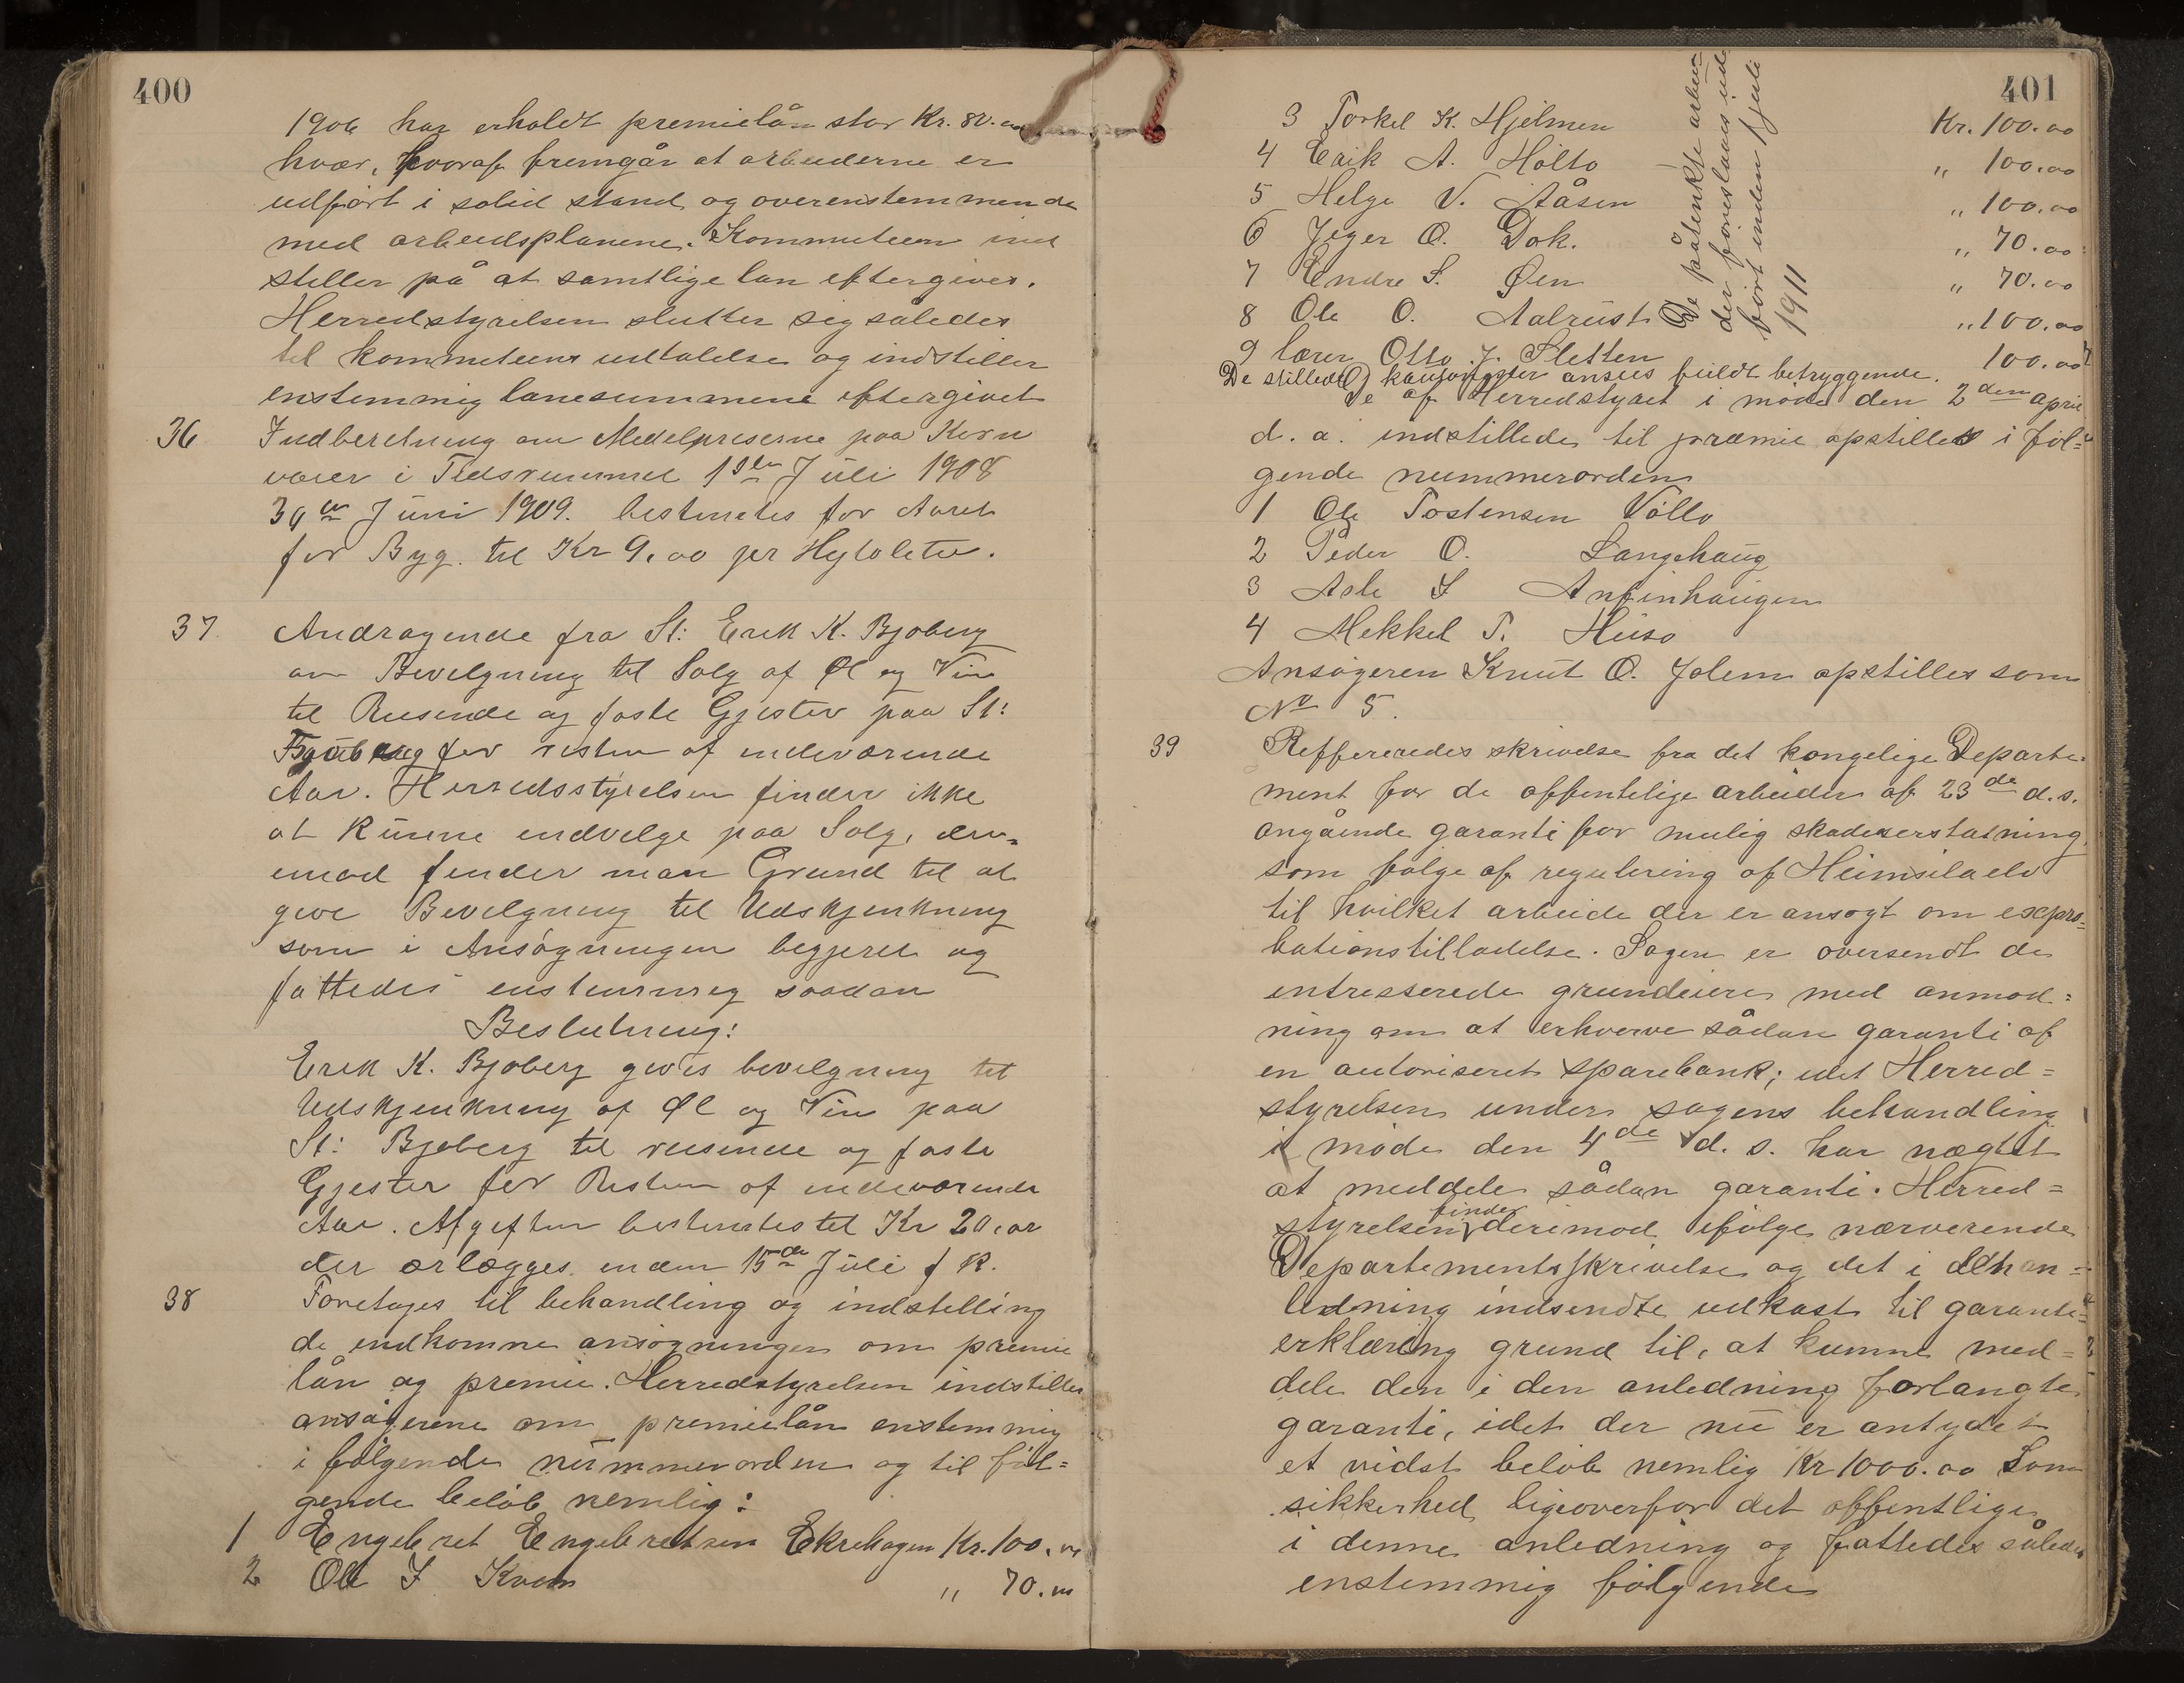 400
1906 har erholdt premielån stor Kr. 80.00
hvær, hvoraf fremgår at arbeiderne er
udført i solid stand og overenstemmende
med arbeidsplanene. Kommuteen ind
stiller på at samtlige lån eftergives.
Herredstyrelsen slutter sig således
til kommuteens udtalelse og indstiller
enstemmig lånesummene eftergivet
36 Indberetning om Medelpriserne paa Korn
varer i Tidsrummet 1ste Juli 1908
30te Juni 1909. bestemtes for Aaret
for Byg. til Kr 9.00 per Hektoliter.
37 Andragende fra St: Erik K. Bjøberg
om Bevilgning til Salg af Øl og Vin
til Reisende og faste Gjester paa St:
Bjøberg for resten af indeværende
Aar. Herredsstyrelsen finder ikke
at kunne indvilge paa Salg, der-
imod finder man Grund til at
give Bevilgning til Udskjenkning
som i Ansøgningen begjeret og
fattedes enstemmig saadan
Beslutning:
Erik K. Bjøberg gives bevilgning til
Udskjenkning af Øl og Vin paa
St: Bjøberg til reisende og faste
Gjester for Resten af indeværende
Aar. Afgiften bestemtes til Kr 20.00
der erlægges inden 15de Juli f k.
38 Foretages til behandling og indstilling
de indkomne ansøgninger om premie
lån og premie. Herredstyrelsen indstiller
ansøgerene om premielån enstemmig
i følgende nummerorden og til føl=
gende beløb nemlig:
1 Engebret Engebretsen Ekrehagen Kr. 100.00
2 Ole I Kvam " 70.00
401
3 Torkel K. Hjelmen Kr. 100.00
4 Eaik A. Holto " 100.00
5 Helge V. Aåsen " 100.00
6 Jeger O. Dok. " 70.00
7 Endre S. Øen " 70.00
8 Ole O. Aalrust " 100.00
9 lærer Otto J. Sletten 100.00
De påtenkte arbei
der foreslaaes ud
ført inden Juli
1911
De stillede kausjonister ansees fuldt betryggende.
De af Herredstyret i møde den 2den april
d. a. indstillede til præmie opstilles i føl=
gende nummerorden
1 Ole Tostensen Vøllo
2 Peder O. Langehaug
3 Asle S Anfinhaugen
4 Mekkel T. Huso
Ansøgeren Knut O. Jolem opstilles som
No 5.
39 Reffereredes skrivelse fra det kongelige Departe=
ment for de offentelige arbeider af 23de d.s.
angående garanti for mulig skadeserstatning
som følge af regulering af Heimsilaelv
til hvilket arbeide der er ansøgt om expro=
bationstilladelse. Sagen er oversendt de
intresserede grundeiere med anmod=
ning om at erhverve sådan garanti af
en autoriseret sparebank; idet Herred=
styrelsen under sagens behandling
i møde den 4de d. s. har nægtet
at meddele sådan garanti. Herred=
styrelsen finder derimod ifølge nærverende
Departementsskrivelse og det i den an=
ledning indsendte udkast til garanti=
erklæring grund til, at kunne med=
dele den i den anledning forlangte
garanti, idet der nu er antydet
et vidst beløb nemlig Kr 1000.00 Som
sikkerhed ligeoverfor det offentlige
i denne anledning og fattedes således
enstemmig følgende